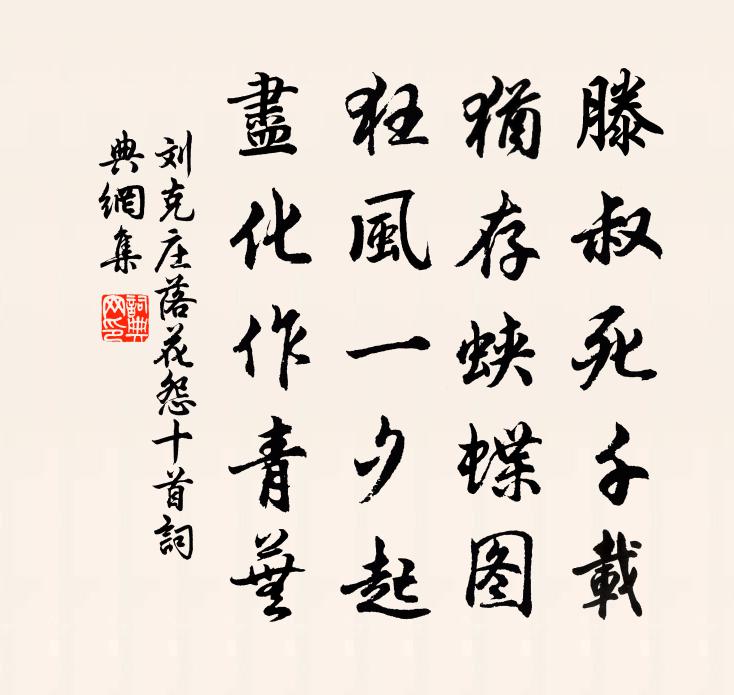 滕叔死千載
猶存蛺蝶图
狂風一夕起
盡化作青蕪
刘克庄落花怨十首詞
典網集
詞典网印